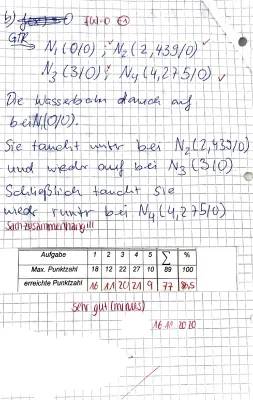 b) f(x) = 0 f(x)=0
GTR N₁(0/0) ; N₂(2,439/0)
N₃(3/0) ; N₄(4,275/0)
Die Wasserbahn auf
bei N₁(0/0).
Sie taucht unter bei N₂(2,439/0)
und wieder auf bei N₃(3/0)
Schließlich taucht sie
wieder runter bei N₄(4,275/0)
Sachzusammenhang!!!
Aufgabe 1 2 3 4 5 Σ %
Max. Punktzahl 18 12 22 27 10 89 100
erreichte Punktzahl 16 11 20 21 9 77 86,5
sehr gut (minus)
16.11.2020